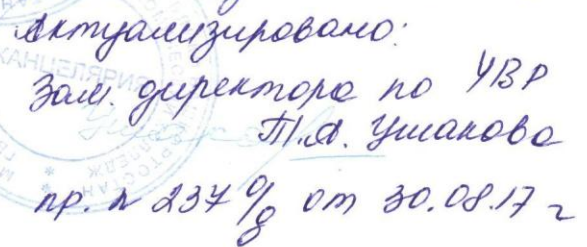 Актуализировано:
Зам. директора по УВР
Т.А. Ушакова
пр. № 237 о/д от 30.08.17 г
КАНЦЕЛЯРИЯ